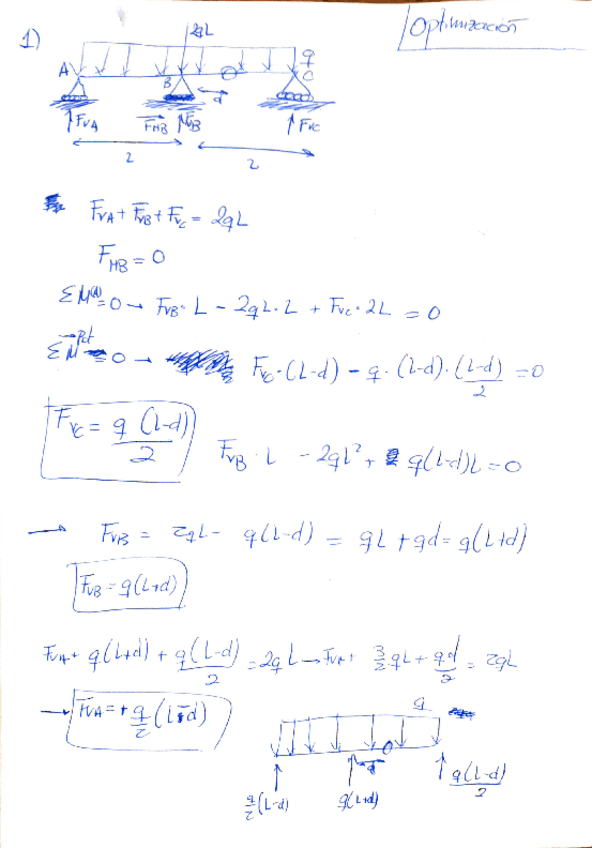 Optimización
1)
2qL
q
A B C
d
F_VA F_HB F_VB F_VC
L L
F_VA + F_VB + F_VC = 2qL
F_HB = 0
ΣM(A) = 0 → F_VB · L - 2qL · L + F_VC · 2L = 0
= 0 → F_VC · (L-d) - q · (L-d) · (L-d)/2 = 0
F_VC = q (L-d)/2
F_VB · L - 2qL² + q(L-d)L = 0
→ F_VB = 2qL - q(L-d) = qL + qd = q(L+d)
F_VB = q(L+d)
F_VA + q(L+d) + q(L-d)/2 = 2qL → F_VA + 3/2 qL + qd/2 = 2qL
→ F_VA = + q/2 (L-d)
q
d
q/2 (L-d) q(L+d) q(L-d)/2